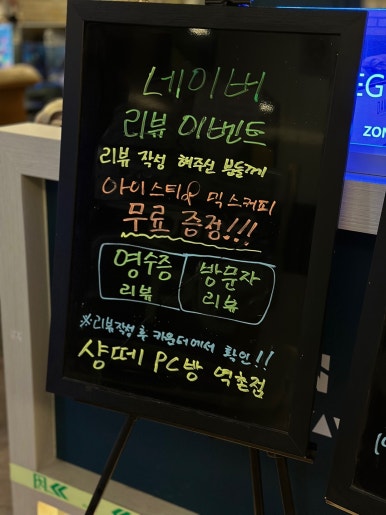 네이버
리뷰 이벤트
리뷰 작성 해주신 분들께
아이스티or 믹스커피
무료 증정!!!
영수증
리뷰
방문자
리뷰
※리뷰작성 후 카운터에서 확인!!
샹떼 PC방 역촌점
ZON